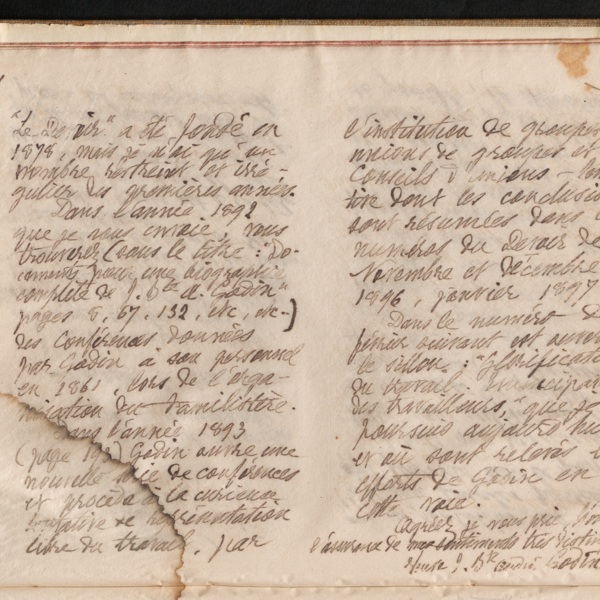 "Le Devoir" a été fondé en
1878, mais je n'ai qu'un
nombre restreint et irré-
gulier des premières années.
Dans l'année 1892
que je vous envoie, vous
trouverez (sous le titre : "Do-
cuments pour une biographie
complète de J. Bte A. Godin"
pages 8, 67, 132, etc, etc-)
des Conférences données
par Godin à son personnel
en 1861, lors de l'orga-
nisation du Familistère.
l'année 1893
(page Godin ouvre une
nouvelle série de conférences
et procède à la curieuse
de représentation
libre du travail, par
l'institution de groupes
unions de groupes et
Conseils d'unions -
dont les conclusio
sont résumées dans
numéros du Devoir de
Novembre et décembre
1896, janvier 1897
Dans le numéro
février suivant est
le sillon : "Glorificati
du travail.
des travailleurs," que je
poursuis aujourd'hui
et où sont relevés
efforts de Godin en
cette voie.
Agréez, je vous prie,
l'assurance de mes sentiments très distin
Veuve J. Bte André Godin